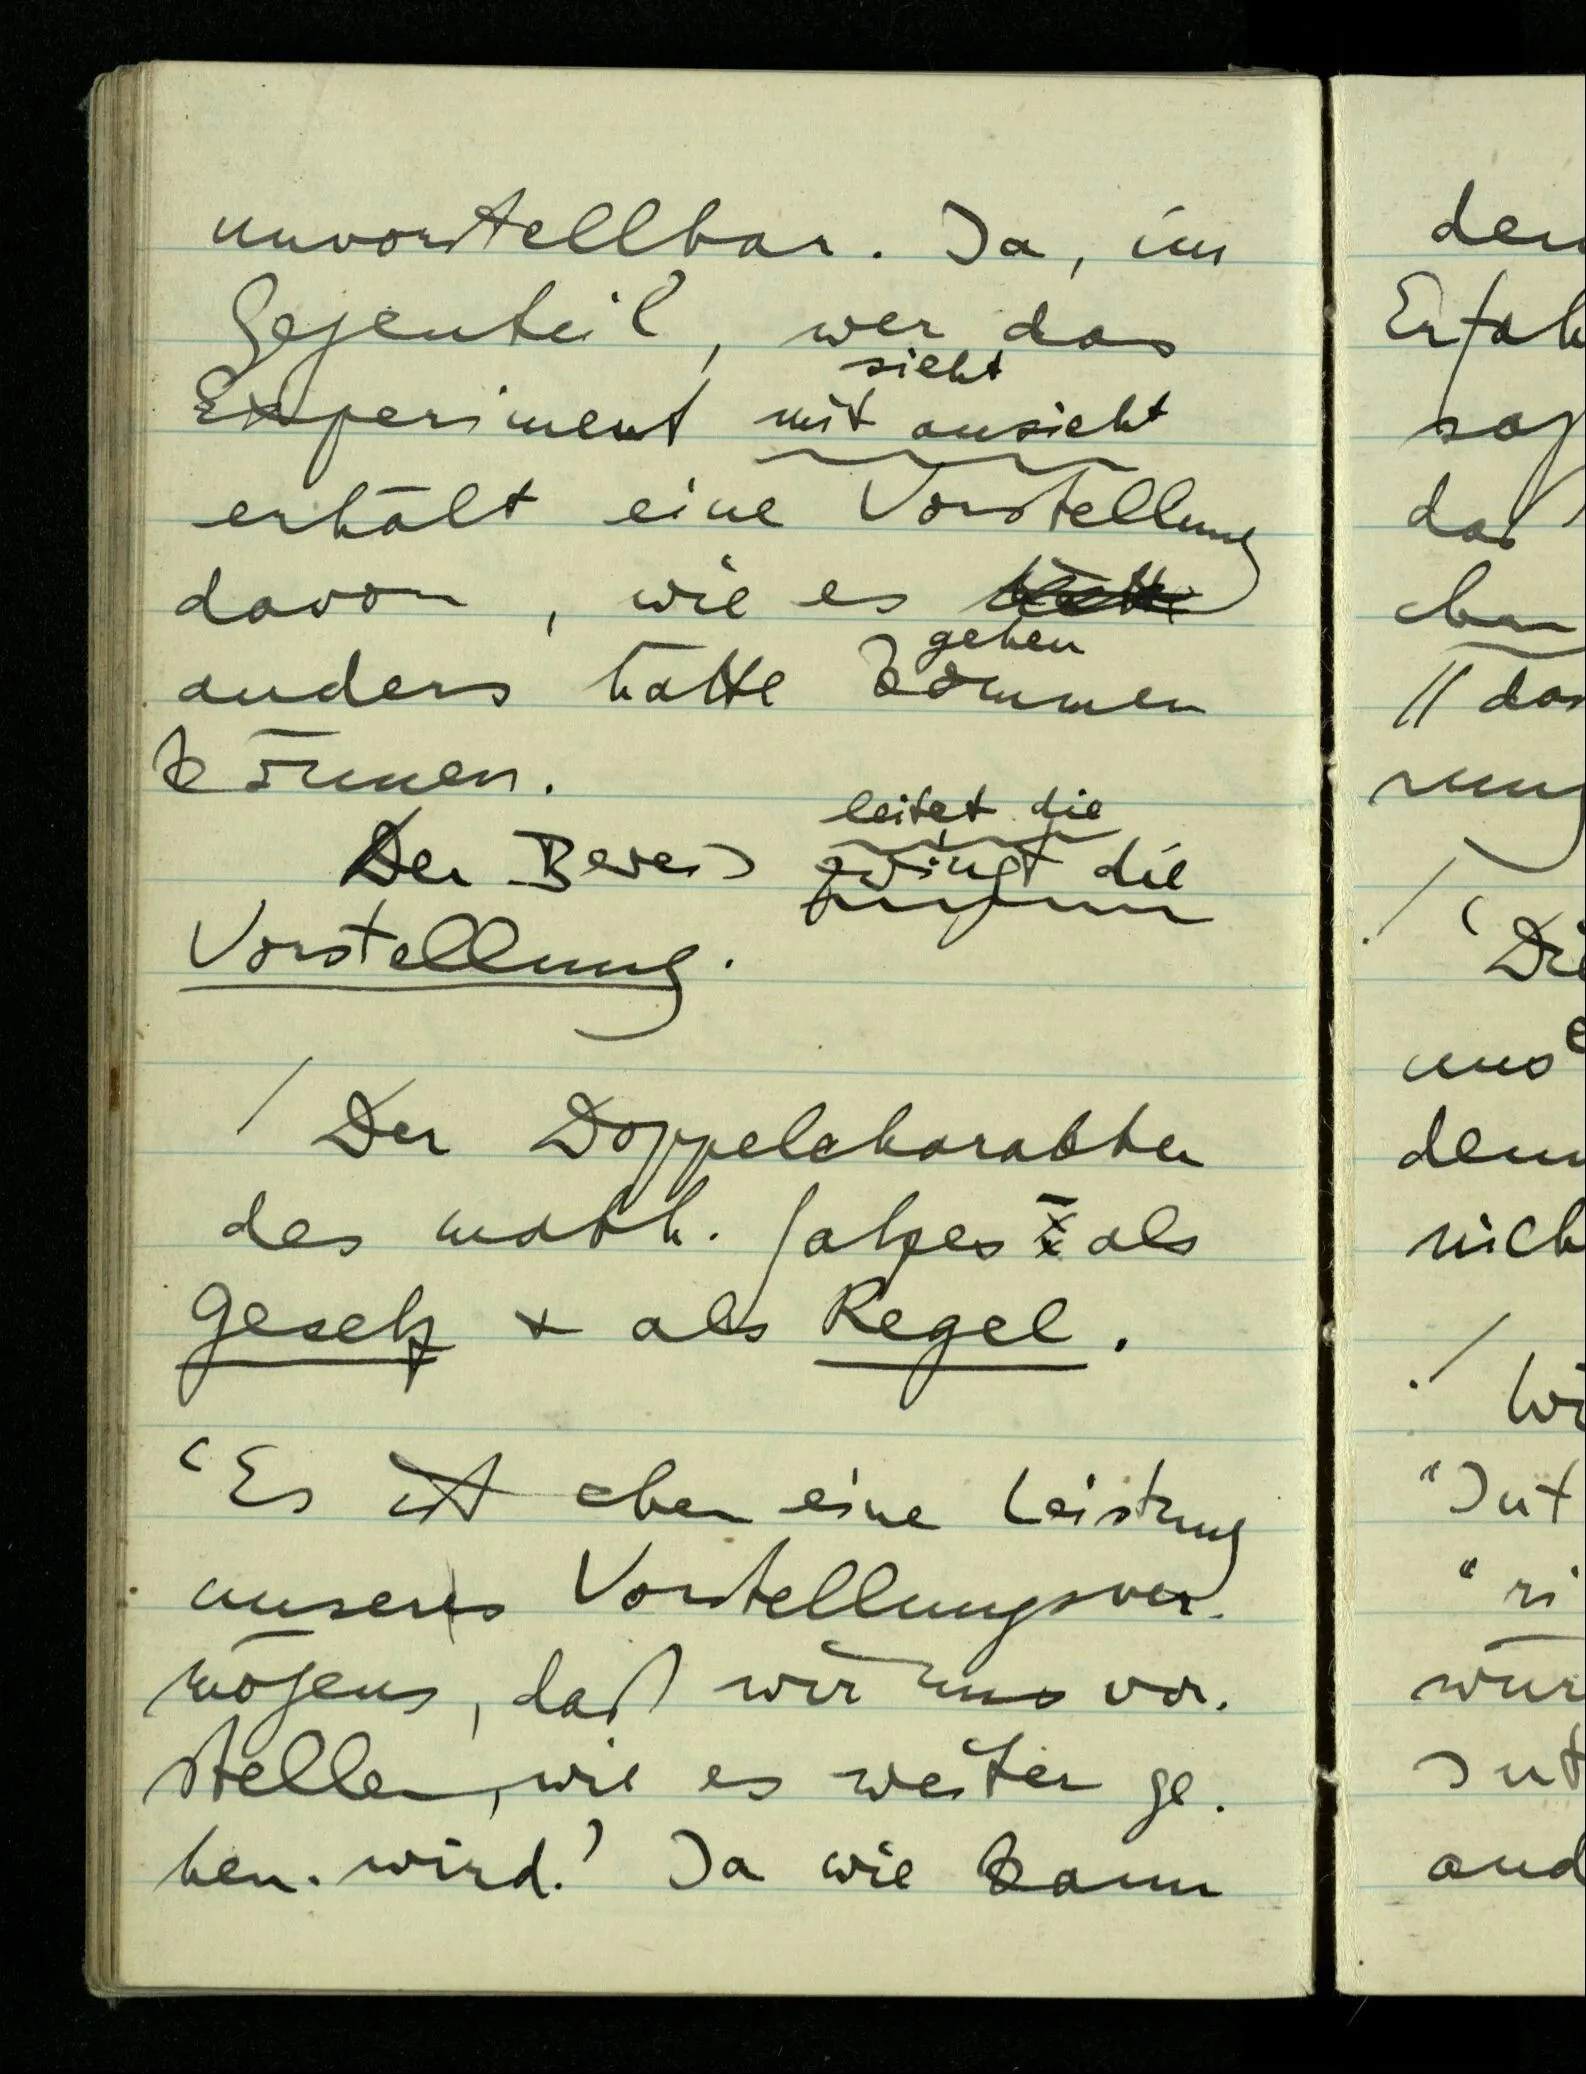 unvorstellbar. Ja, im
Gegenteil, wer das
sieht
Experiment mit ansieht
erhält eine Vorstellung
davon, wie es
gehen
anders hätte kommen
können.
leitet die
Der Beweis zwingt die
Vorstellung.
/ Der Doppelcharakter
des math. Satzes als
Gesetz & als Regel.
‘Es ist eben eine Leistung
unseres Vorstellungsver-
mögens, daß wir uns vor-
stellen, wie es weiter ge-
hen wird.’ Ja wie kann
den
Erfah
sag
das
eben
// das
rung
/ ‘Die
uns
dem
nich
/ Wi
“Int
“ri
wür
Int
and